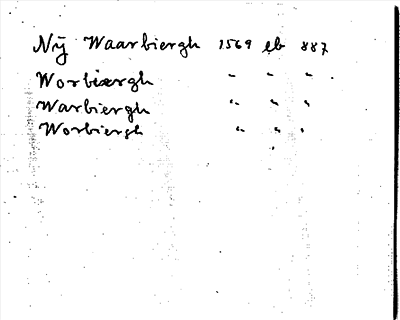 Nÿ Waarbiergh 1569 eb 887
Worbiærgh " " " .
Warbiergh " " "
Worbiergh " " "